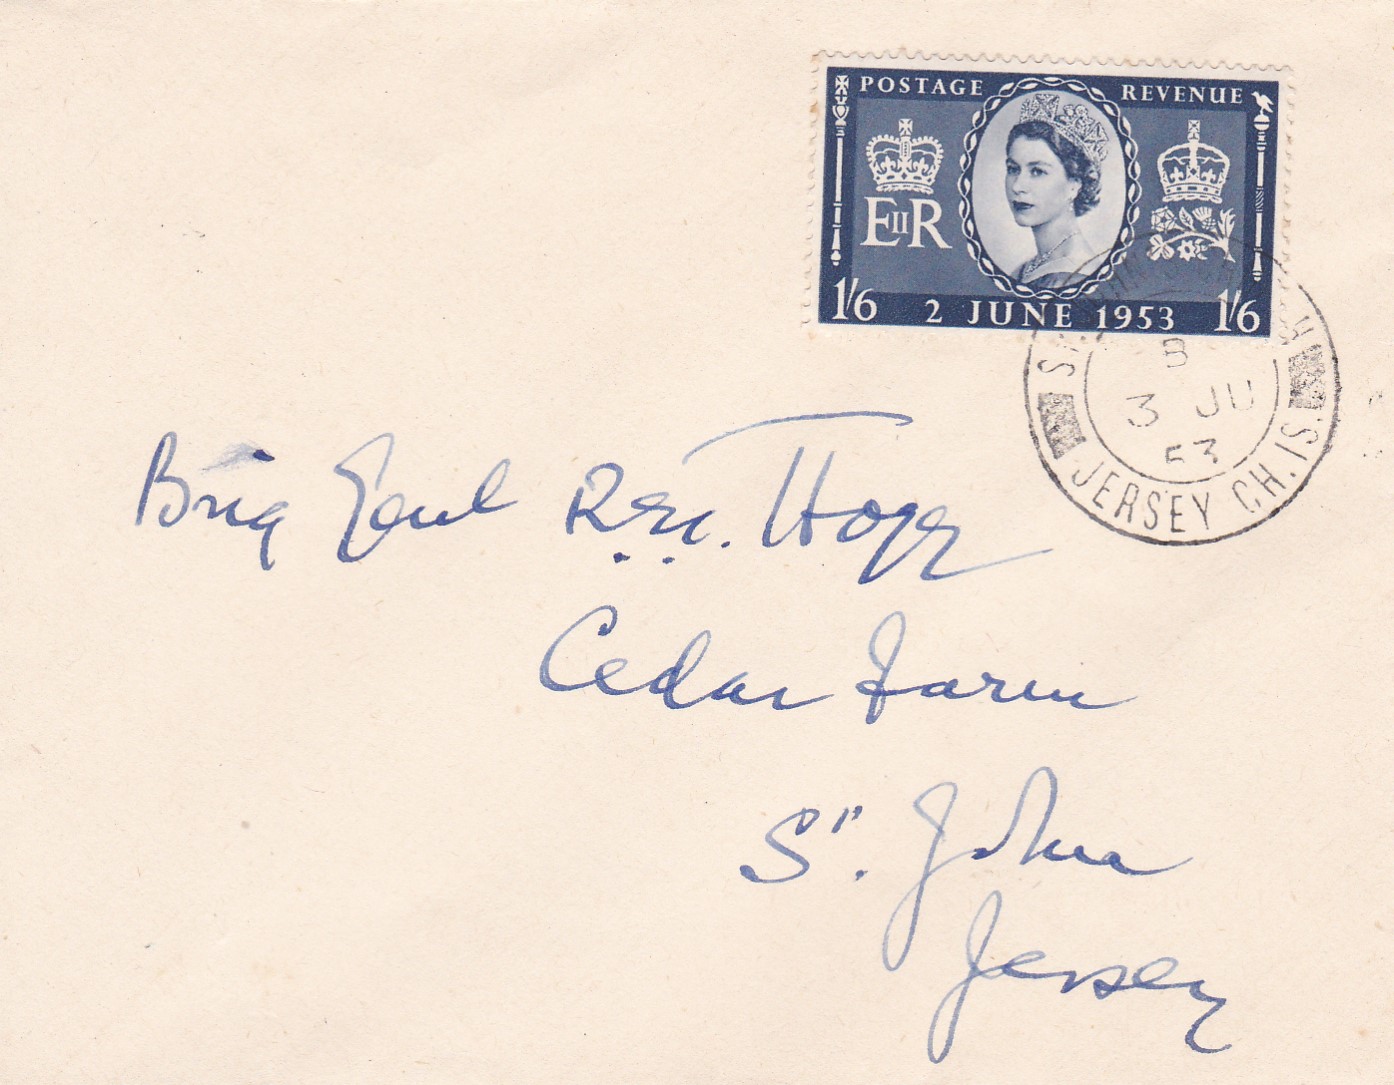 POSTAGE REVENUE
EIIR
1/6 2 JUNE 1953 1/6
B
3 JU
53
JERSEY CH. IS.
Brig Genl R.E.T. Hogg
Cedar Farm
St. John
Jersey